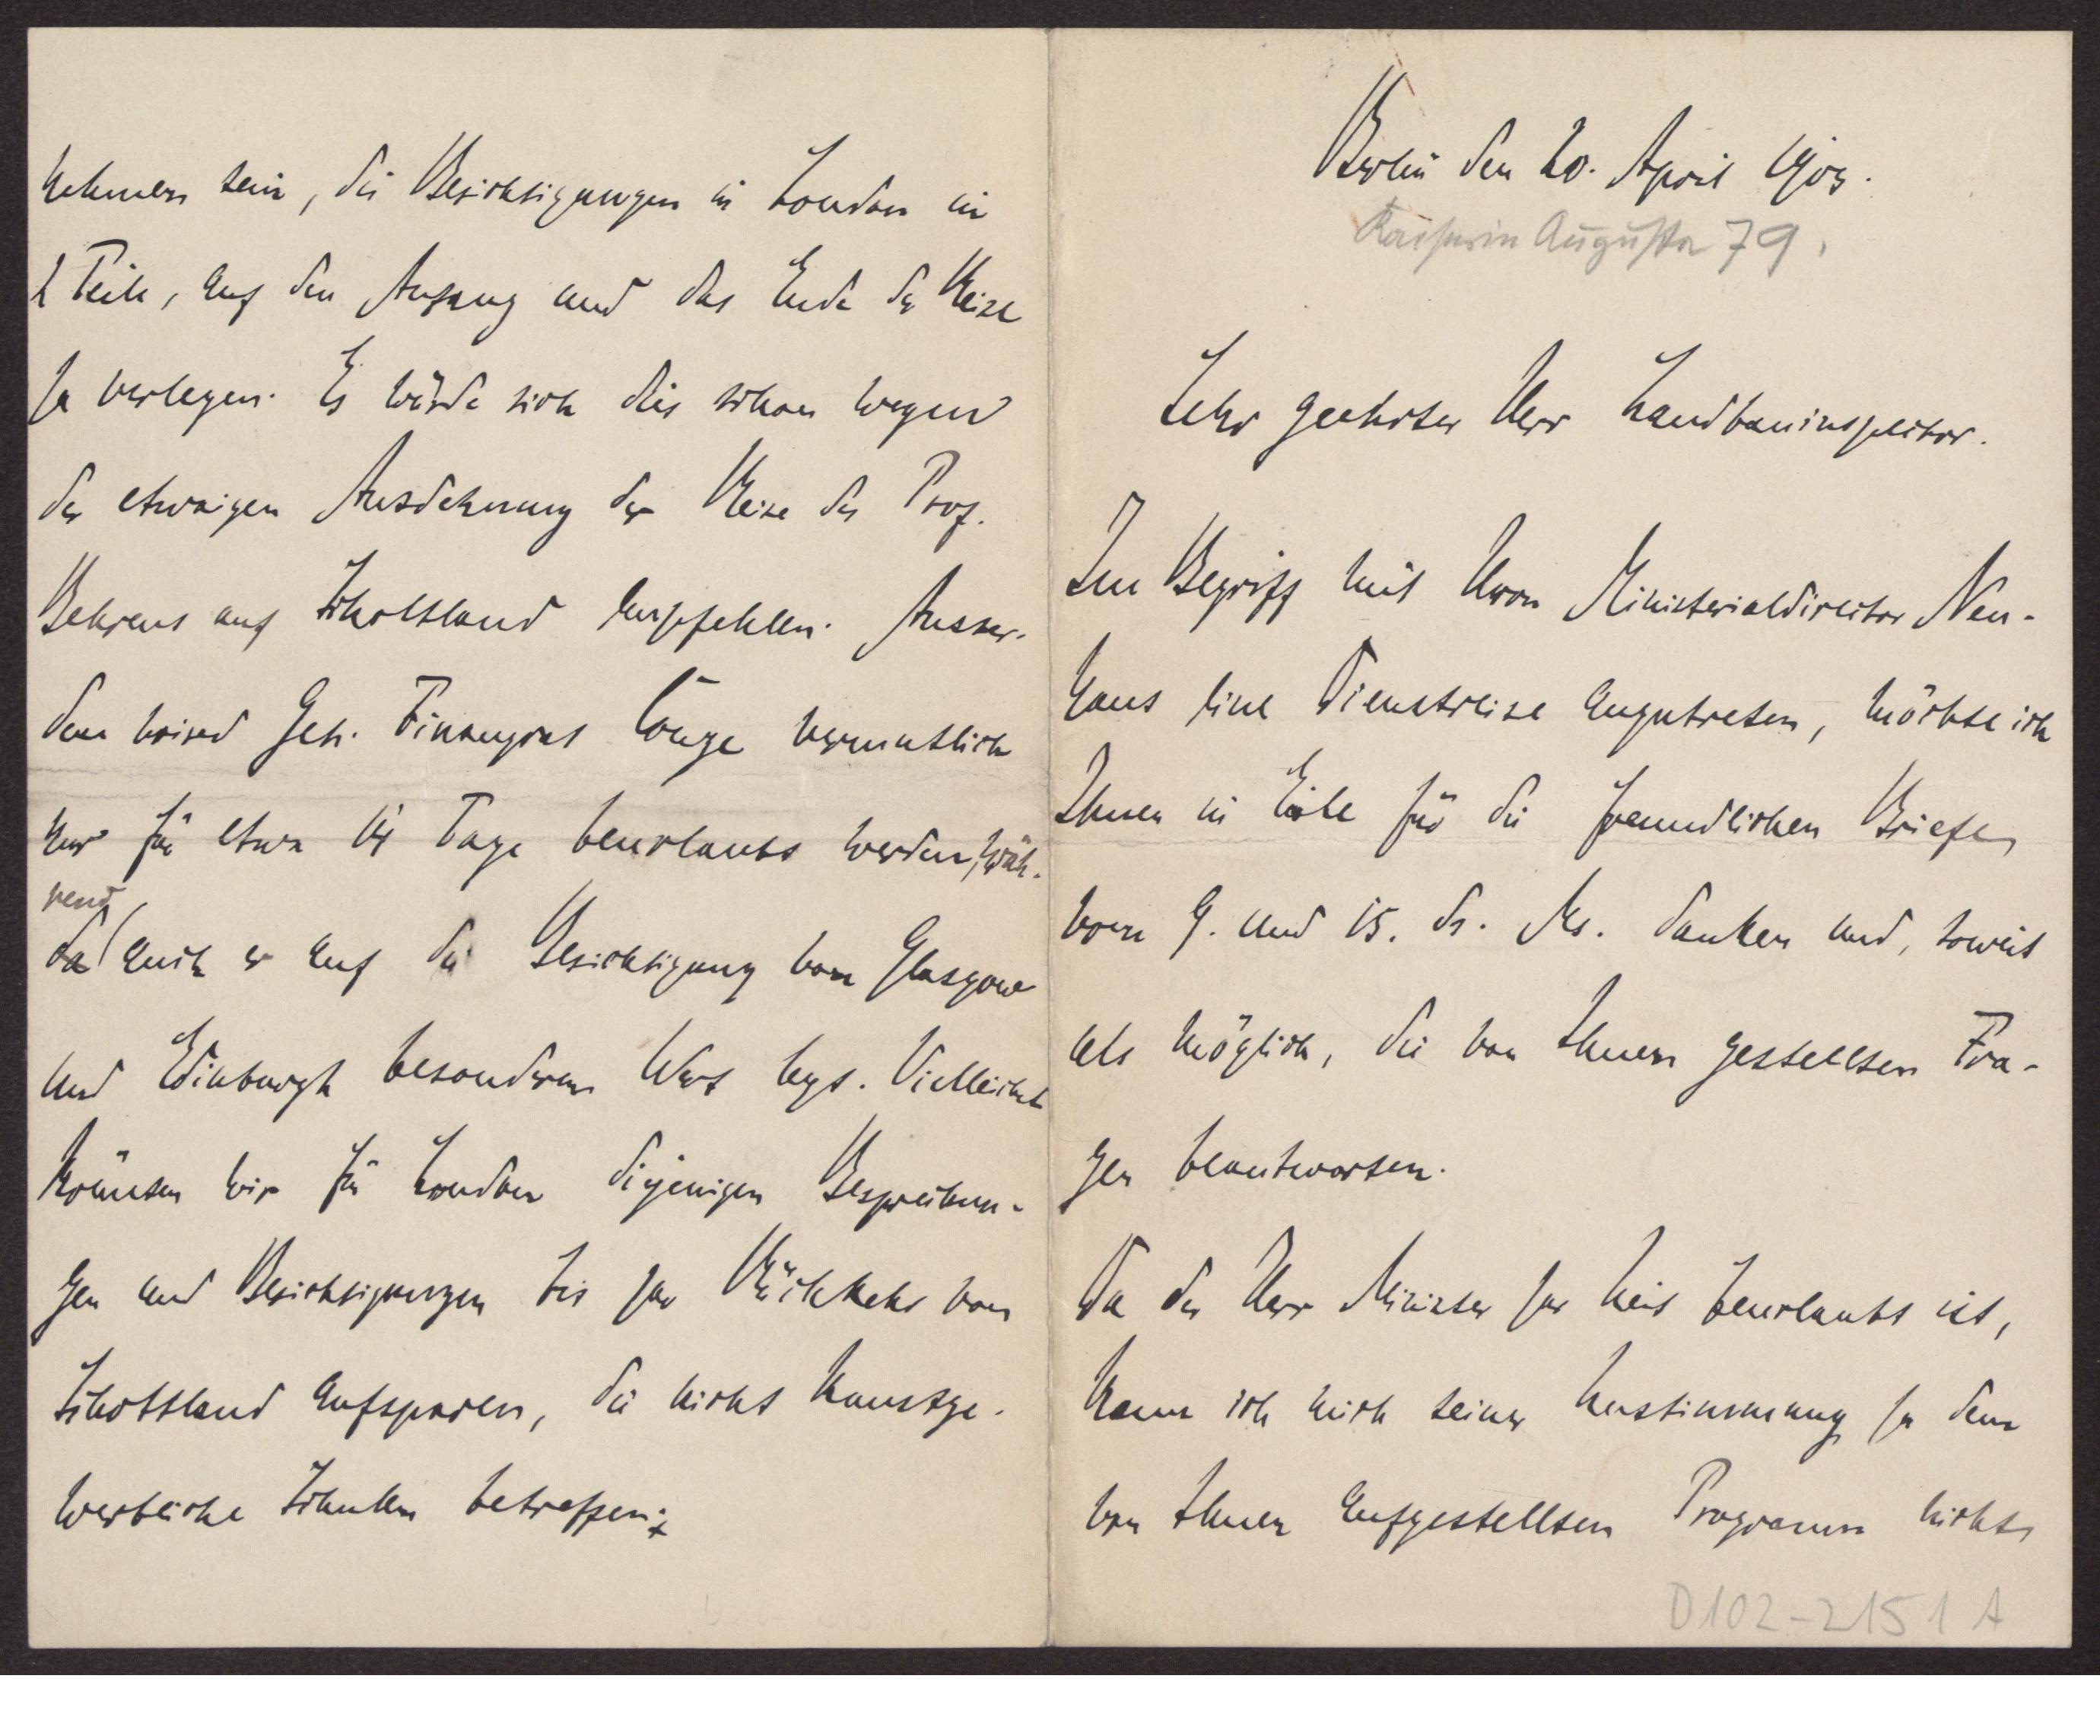 Berlin den 20. April 1903.
Kaiserin Augusta 79.
Sehr geehrter Herr Landbauinspektor.
Im Begriff mit Herrn Ministerialdirektor Neu-
haus eine Dienstreise anzutreten, möchte ich
Ihnen in Eile für die freundlichen Briefe
vom 9. und 15. ds. Ms. danken und, soweit
als möglich, die von Ihnen gestellten Fra-
gen beantworten.
Da der Herr Minister zur Zeit beurlaubt ist,
kann ich mich seiner Zustimmung zu dem
von Ihnen aufgestellten Programm nicht
nehmen sein, die Besichtigungen in London in
2 Teile, auf den Anfang und das Ende der Reise
zu verlegen. Es würde sich dies schon wegen
der etwaigen Ausdehnung der Reise des Prof.
Behrens auf Schottland empfehlen. Ausser-
dem wird Geh. Finanzrat Lange vermutlich
nur für etwa 14 Tage beurlaubt werden, wäh-
rend
da auch er auf die Besichtigung von Glasgow
und Edinburgh besonderen Wert legt. Vielleicht
könnten wir für London diejenigen Besprechun-
gen und Besichtigungen bis zur Rückkehr von
Schottland aufsparen, die nicht kunstge-
werbliche Schulen betreffen;
D102-2151 A